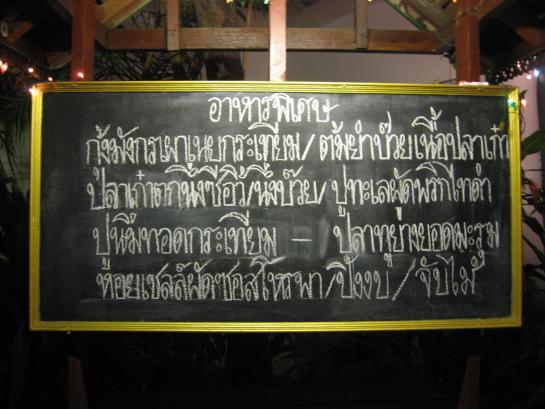 อาหารพิเศษ
กุ้งมังกรเผาเนยกระเทียม / ต้มยำบ๊วยเนื้อปลาเก๋า
ปลาเก๋า นึ่งซีอิ้ว/นึ่งบ๊วย / ปูทะเลผัดพริกไทดำ
ปูนิ่มทอดกระเทียม - ปลาทูย่างยอดมะรุม
หอยเชลล์ผัดซอสโหรพา/ปิ้งงบ / จับไม้